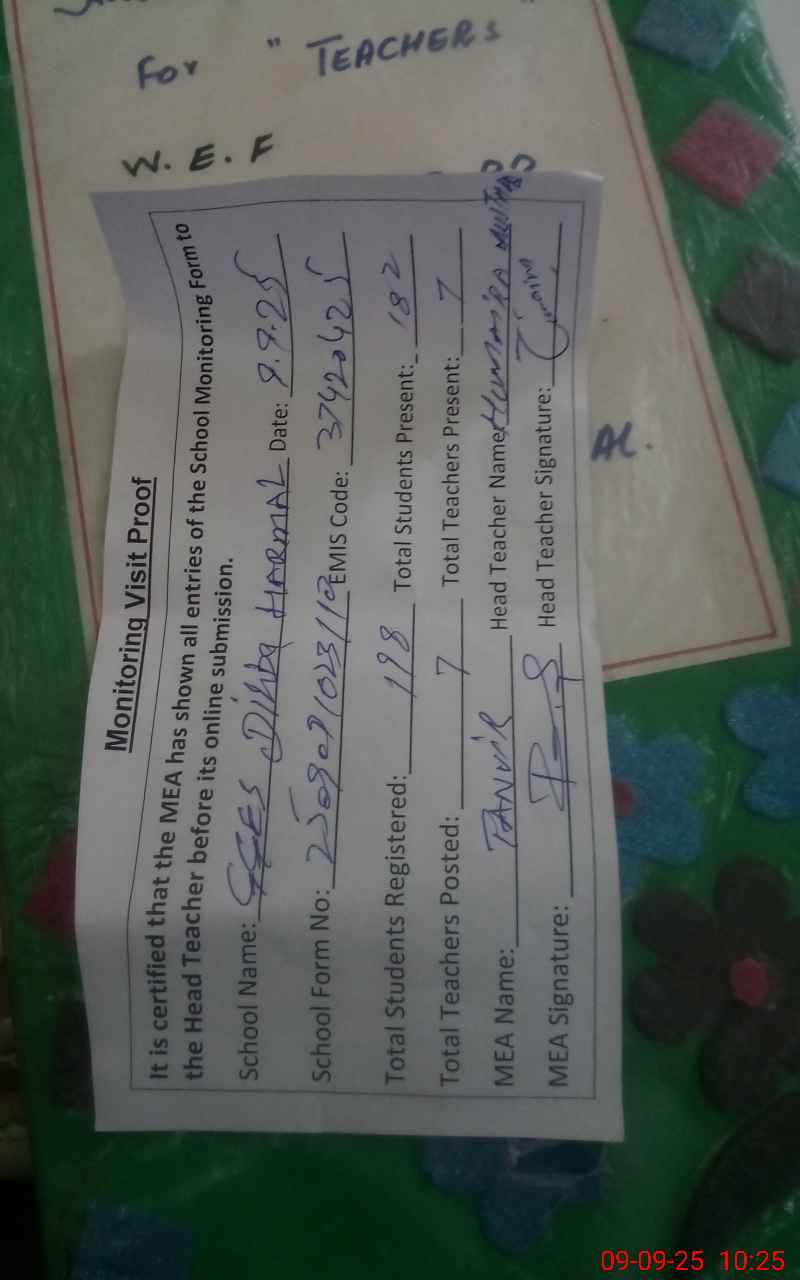 For "TEACHERS"
W. E. F
Monitoring Visit Proof
It is certified that the MEA has shown all entries of the School Monitoring Form to
the Head Teacher before its online submission.
School Name: GGES Dihba HARMAL Date: 9.9.25
School Form No: EMIS Code: 37420425
Total Students Registered: 198 Total Students Present: 182
Total Teachers Posted: 7 Total Teachers Present: 7
MEA Name: TANVIR Head Teacher Name: HUMAIRA
MEA Signature: Head Teacher Signature:
AL.
09-09-25 10:25